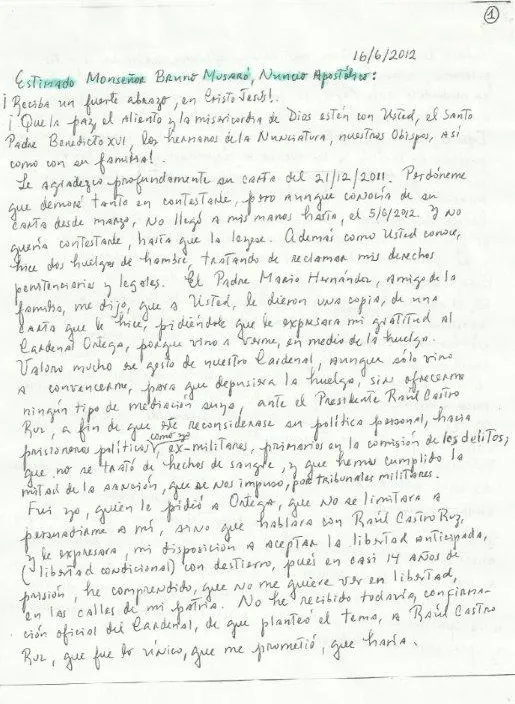 ①
16/6/2012
Estimado Monseñor Bruno Musaró, Nuncio Apostólico:
¡Reciba un fuerte abrazo, en Cristo Jesús!.
¡Que la paz, el aliento y la misericordia de Dios estén con Usted, el Santo
Padre Benedicto XVI, los hermanos de la Nunciatura, nuestros Obispos, así
como con su familia!.
Le agradezco profundamente su carta del 21/12/2011. Perdóneme
que demoré tanto en contestarle, pero aunque conocía de su
carta desde marzo, no llegó a mis manos hasta, el 5/6/2012. Y no
quería contestarle, hasta que la leyese. Además como Usted conoce,
hice dos huelgas de hambre, tratando de reclamar mis derechos
penitenciarios y legales. El Padre Mario Hernández, amigo de la
familia, me dijo, que a Usted, le dieron una copia, de una
carta que le hice, pidiéndole que le expresara mi gratitud al
Cardenal Ortega, porque vino a verme, en medio de la huelga.
Valoro mucho ese gesto de nuestro Cardenal, aunque sólo vino
a convencerme, para que depusiera la huelga, sin ofrecerme
ningún tipo de mediación suya, ante el Presidente Raúl Castro
Ruz, a fin de que éste reconsiderase su política personal, hacia
prisioneros políticos como yo, ex-militares, primarios en la comisión de los delitos,
que no se trató de hechos de sangre, y que hemos cumplido la
mitad de la sanción, que se nos impuso, por tribunales militares.
Fui yo, quien le pidió a Ortega, que no se limitara a
persuadirme a mí, sino que hablara con Raúl Castro Ruz,
y le expresara, mi disposición a aceptar la libertad anticipada,
(libertad condicional) con destierro, pués en casi 14 años de
prisión, he comprendido, que no me quiere ver en libertad,
en las calles de mi patria. No he recibido todavía, confirma-
ción oficial del Cardenal, de que planteó el tema, a Raúl Castro
Ruz, que fue lo único, que me prometió, que haría.